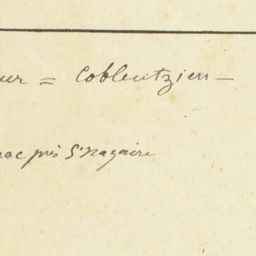 ur = Coblentzien —
ac près St Nazaire